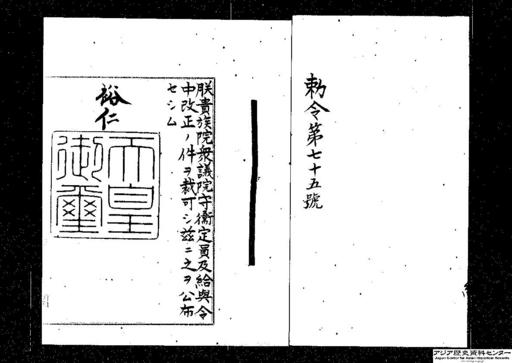 勅令第七十五號
朕貴族院衆議院守衞定員及給與令
中改正ノ件ヲ裁可シ茲ニ之ヲ公布
セシム
裕仁
天皇
御璽
アジア歴史資料センター
Japan Center for Asian Historical Records